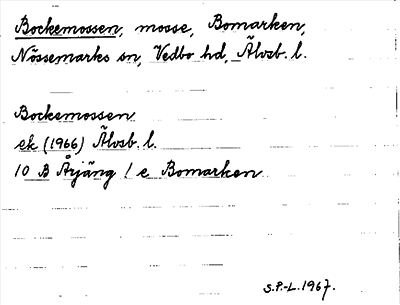 Bockemossen, mosse, Bomarken,
Nössemarks sn, Vedbo hd, Älvsb. l.
Bockemossen
ek (1966) Älvsb. l.
10 B Årjäng 1 e Bomarken
S.P.-L. 1967.